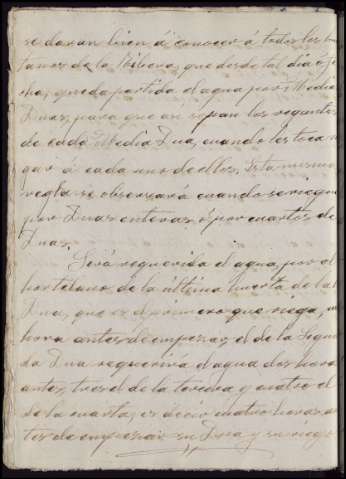 se daran bien á conocer á todos los
tanos de la Ribera, que desde tal dia
cha, queda partida el agua por Media
Duas, para que asi sepan los regantes
de cada Media Dua, cuando les toca
gar á cada uno de ellos. Esta misma
regla se observará cuando se riegue
por Duas enteras, o por cuartos de
Duas.
Será requerida el agua, por el
hortelano de la última huerta de la
Dua, que es el primero que riega,
hora antes de empezar; el de la Segun
da Dua requerirá el agua dos horas
antes, tres el de la tercera y cuatro el
de la cuarta, es decir cuatro horas an
tes de empezar su Dua y su riego